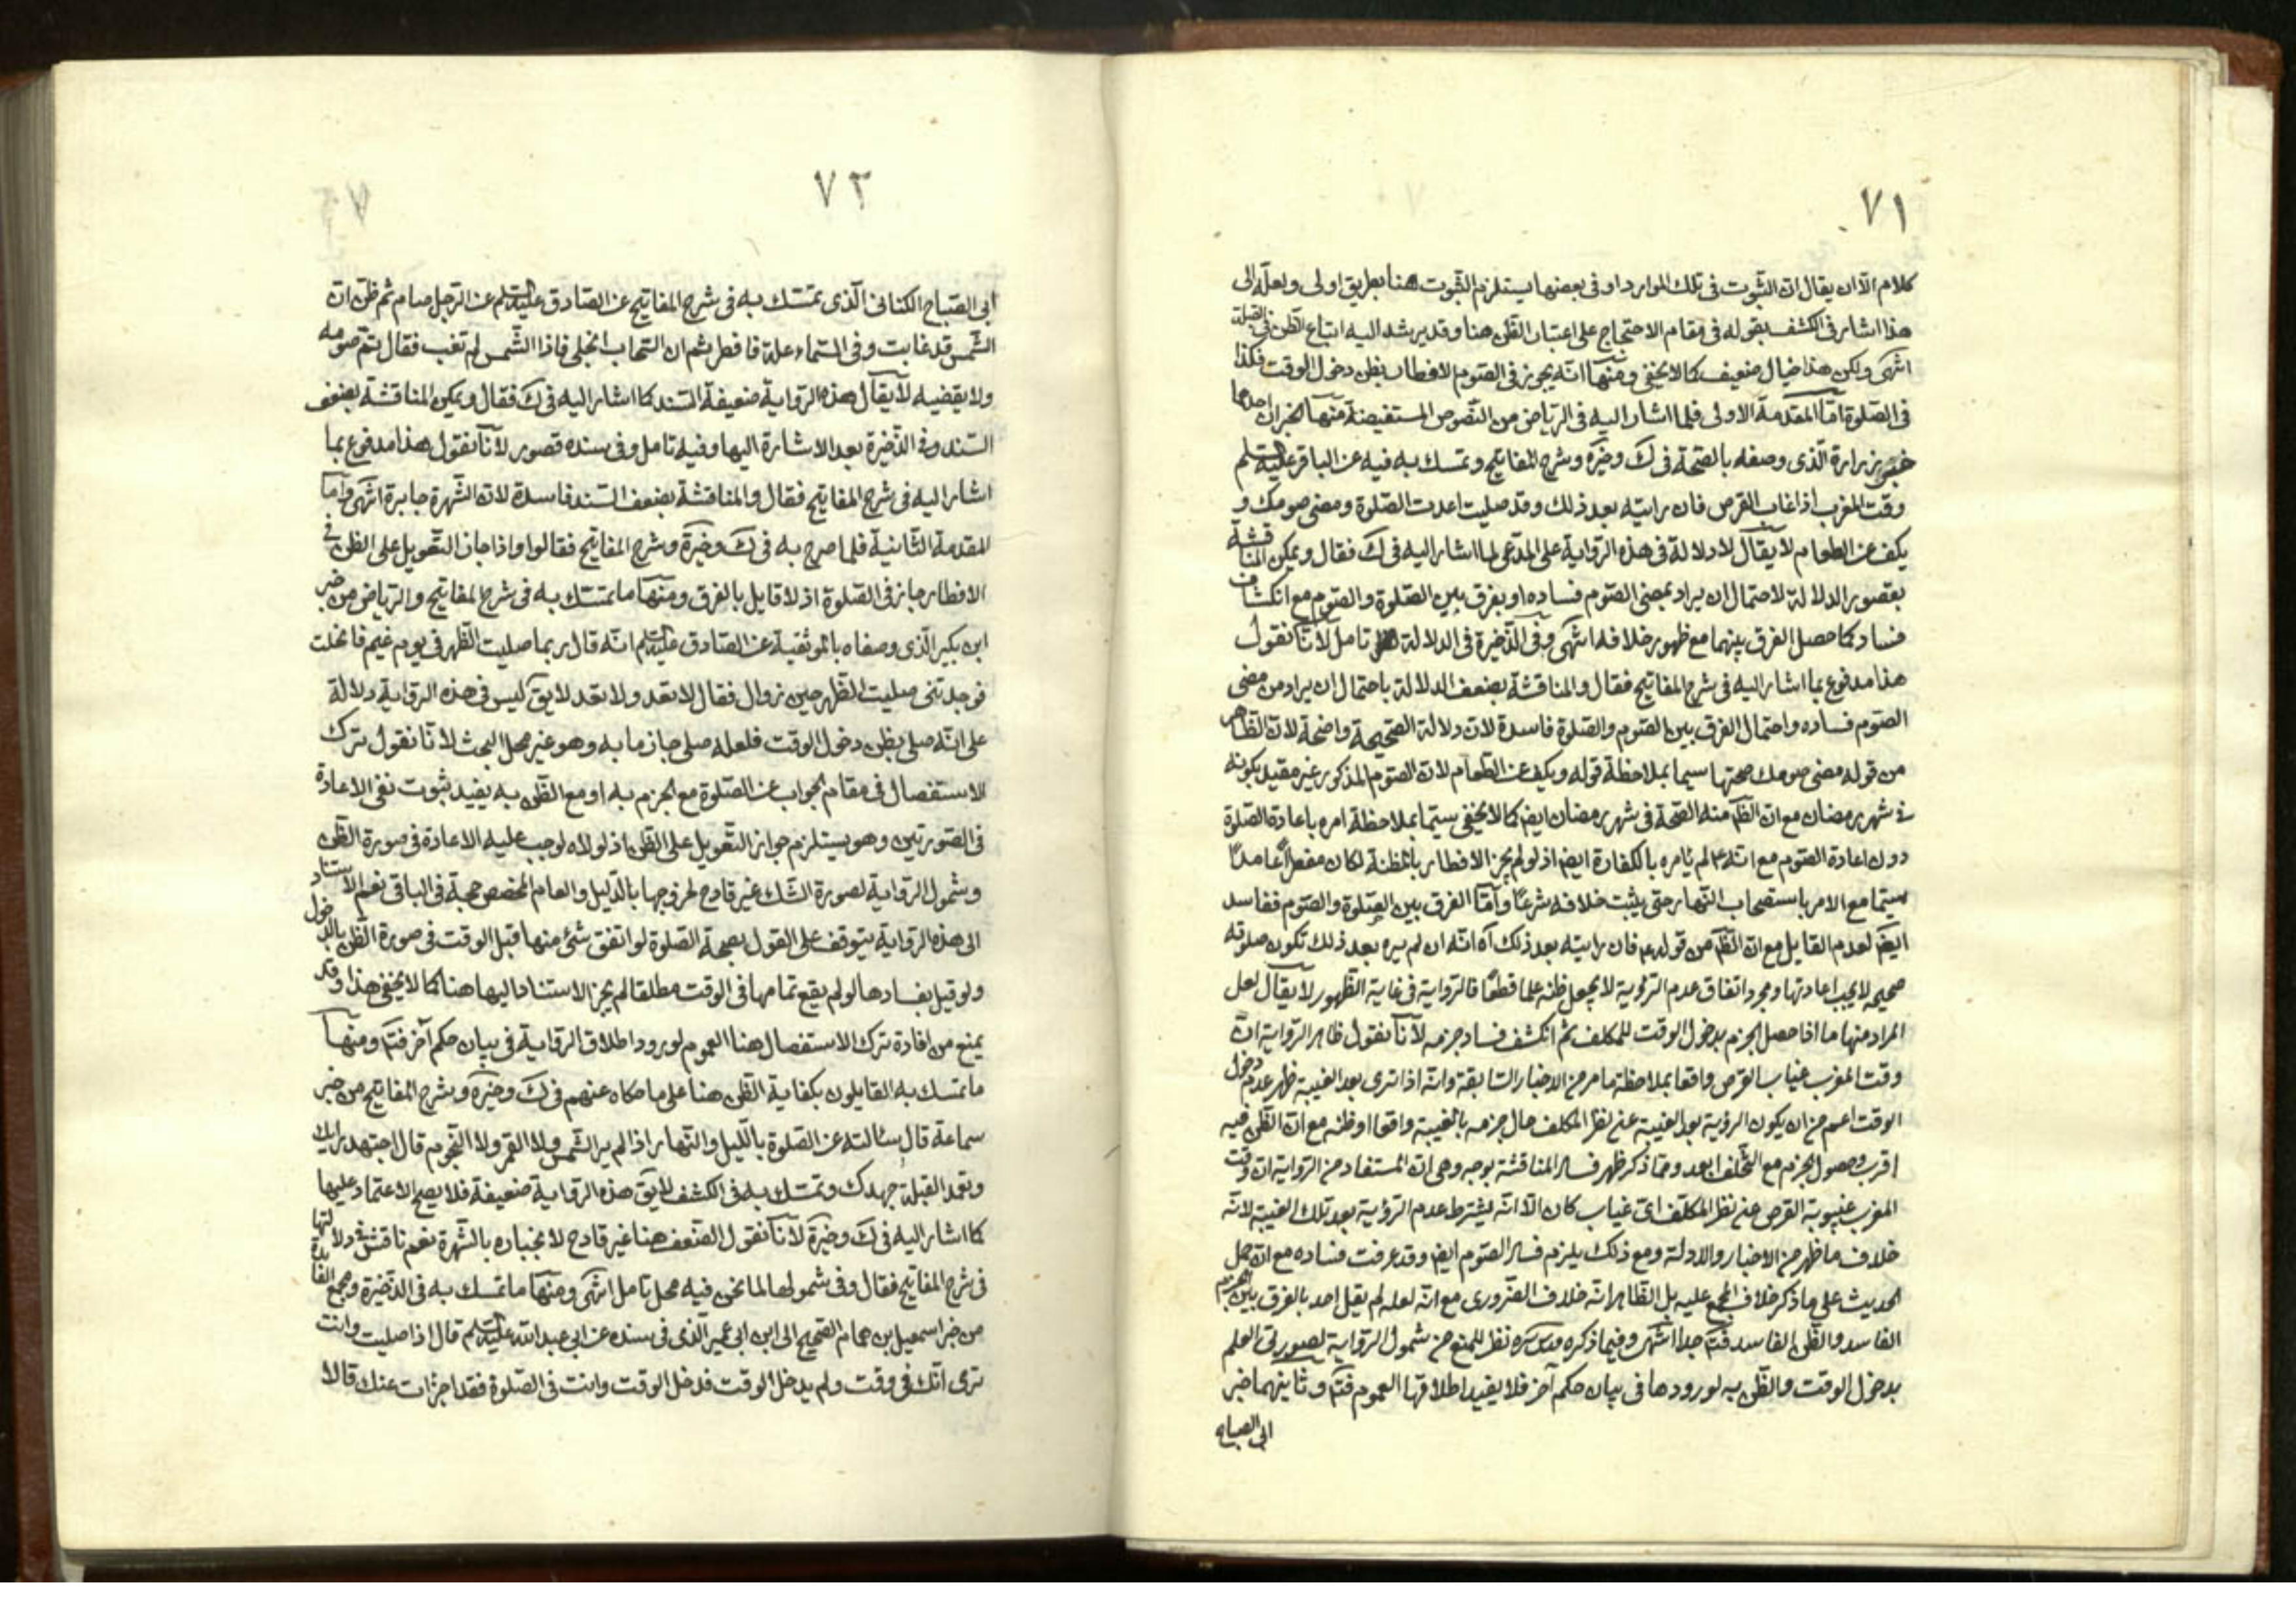 ٧١
كلام الا ان يقال ان الثبوت فى تلك الموارد او فى بعضها يستلزم الثبوت هنا بطريق اولى ولعله الى
هذا اشار فى الكشف بقوله فى مقام الاحتجاج على اعتبار الظن هنا وقد يرشد اليه اتباع الظن فى القبلة
انتهى ولكن هذا خيال ضعيف كما لا يخفى ومنها انه يجوز فى الصوم الافطار بظن دخول الوقت فكذا
فى الصلوة اما المقدمة الاولى فلما اشار اليه فى الرياض من النصوص المستفيضة منها خبران احدهما
خبر زرارة الذى وصفه بالصحة فى ك وخيرة وشرح المفاتيح وتمسك به فيه عن الباقر عليه السلم
وقت المغرب اذا غاب القرص فان رايته بعد ذلك وقد صليت اعدت الصلوة ومضى صومك و
يكف عن الطعام لا يقال لا دلالة فى هذه الرواية على المدعى لما اشار اليه فى ك فقال ويمكن المناقشة
بقصور الدلالة لاحتمال ان يراد بمضى الصوم فساده او يفرق بين الصلوة والصوم مع انكشاف
فساد كما حصل الفرق بينهما مع ظهور خلافه انتهى وفى الذخيرة فى الدلالة تامل لانا نقول
هذا مدفوع بما اشار اليه فى شرح المفاتيح فقال والمناقشة بضعف الدلالة باحتمال ان يراد من مضى
الصوم فساده واحتمال الفرق بين الصوم والصلوة فاسدة لان دلالة الصحيحة واضحة لان الظاهر
من قوله مضى صومك صحتها سيما بملاحظة قوله ويكف عن الطعام لان الصوم المذكور غير مقيد بكونه
فى شهر رمضان مع ان الظ منه الصحة فى شهر رمضان ايض كما لا يخفى سيما بملاحظة امره باعادة الصلوة
دون اعادة الصوم مع انه ع لم يامره بالكفارة ايض اذ لو لم يجز الافطار بالمظنة لكان مفطرا عامدا
سيما مع الامر باستصحاب النهار حتى يثبت خلافه شرعا واما الفرق بين الصلوة والصوم ففاسد
ايض لعدم القايل مع ان الظ من قوله ع فان رايته بعد ذلك آه انه ان لم يره بعد ذلك تكون صلوته
صحيحه لا يجب اعادتها ومجرد اتفاق عدم الرؤية لا يجعل ظنه علما قطعا فالرواية فى غاية الظهور لا يقال لعل
المراد منها ما اذا حصل الجزم بدخول الوقت للمكلف ثم انكشف فساد جزمه لانا نقول ظاهر الرواية ان
وقت المغرب غياب القرص واقعا بملاحظة ما مر من الاخبار السابقة وانه اذا ترى بعد الغيبة ظهر عدم دخول
الوقت اعم من ان يكون الرؤية بعد الغيبة عن نظر المكلف حال جزمه بالغيبة واقعا او ظنه مع ان الظن فيه
اقرب وحصول الجزم مع التخلف ابعد ومما ذكر ظهر فساد المناقشة بوجه وهى ان المستفاد من الرواية ان وقت
المغرب غيبوبة القرص عن نظر المكلف اى غياب كان الا انه يشترط عدم الرؤية بعد تلك الغيبة لانه
خلاف ما ظهر من الاخبار والادلة ومع ذلك يلزم فساد الصوم ايض وقد عرفت فساده مع ان حمل
الحديث على ما ذكر خلاف المجمع عليه بل الظاهر انه خلاف الضرورى مع انه لعله لم يقل احد بالفرق بين الجزم
الفاسد والظن الفاسد فتم جدا انتهى وفيما ذكره قدس سره نظر للمنع من شمول الرواية لصورتى العلم
بدخول الوقت والظن به لورودها فى بيان حكم آخر فلا يفيد اطلاقها العموم فتم وثانيهما خبر
ابى الصباح
٧٢
ابى الصباح الكنانى الذى تمسك به فى شرح المفاتيح عن الصادق عليه السلم عن الرجل صام ثم ظن ان
الشمس قد غابت وفى السماء علة فافطر ثم ان السحاب انجلى فاذا الشمس لم تغب فقال يتم صومه
ولا يقضيه لا يقال هذه الرواية ضعيفة السند كما اشار اليه فى ك فقال ويمكن المناقشة بضعف
السند وفى الذخيرة بعد الاشارة اليها وفيه تامل وفى سنده قصور لانا نقول هذا مدفوع بما
اشار اليه فى شرح المفاتيح فقال والمناقشة بضعف السند فاسدة لان الشهرة جابرة انتهى واما
المقدمة الثانية فلما صرح به فى ك وخيرة وشرح المفاتيح فقالوا واذا جاز التعويل على الظن فى
الافطار جاز فى الصلوة اذ لا قايل بالفرق ومنها ما تمسك به فى شرح المفاتيح والرياض من خبر
ابن بكير الذى وصفاه بالموثقية عن الصادق عليه السلم انه قال ربما صليت الظهر فى يوم غيم فانجلت
فوجدتنى صليت الظهر حين زوال فقال لا تعد ولا تعد لا يق ليس فى هذه الرواية دلالة
على انه صلى بظن دخول الوقت فلعله صلى جازما به وهو غير محل البحث لانا نقول ترك
الاستفصال فى مقام الجواب عن الصلوة مع الجزم به او مع الظن به يفيد ثبوت نفى الاعادة
فى الصورتين وهو يستلزم جواز التعويل على الظن اذ لولاه لوجب عليه الاعادة فى صورة الظن
وشمول الرواية لصورة الشك غير قادح لخروجها بالدليل والعام المخصص حجة فى الباقى نعم الاستناد
الى هذه الرواية يتوقف على القول بصحة الصلوة لو اتفق شئ منها قبل الوقت فى صورة الظن بالدخول
ولو قيل بفسادها لو لم يقع تمامها فى الوقت مطلقا لم يجز الاستناد اليها هنا كما لا يخفى هذا وقد
يمنع من افادة ترك الاستفصال هنا العموم لورود اطلاق الرواية فى بيان حكم آخر فتم ومنها
ما تمسك به القايلون بكفاية الظن هنا على ما حكاه عنهم فى ك وخيرة وشرح المفاتيح من خبر
سماعة قال سئالته عن الصلوة بالليل والنهار اذا لم ير الشمس ولا القمر ولا النجوم قال اجتهد رايك
وتعمد القبلة جهدك وتمسك به فى الكشف لا يق هذه الرواية ضعيفة فلا يصح الاعتماد عليها
كما اشار اليه فى ك وخيرة لانا نقول الضعف هنا غير قادح لانجباره بالشهرة نعم ناقش فى دلالتها
فى شرح المفاتيح فقال وفى شمولها لما نحن فيه محل تامل انتهى ومنها ما تمسك به فى الذخيرة ومجمع الفائدة
من خبر اسمعيل بن همام الصحيح الى ابن ابى عمير الذى فى سنده عن ابى عبد الله عليه السلم قال اذا صليت وانت
ترى انك فى وقت ولم يدخل الوقت فدخل الوقت وانت فى الصلوة فقد اجزات عنك قالا